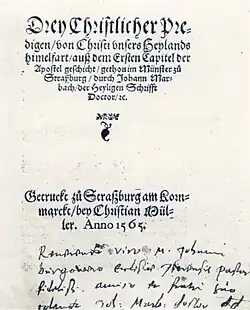 Drey Christlicher Pre-
digen/von Christi vnsers Heylands
himelfart/auß dem Ersten Capitel der
Apostel geschicht/gethon im Münster zů
Straßburg/durch Johann Mar-
bach/der Heyligen Schrifft
Doctor/ꝛc.
Getruckt zů Straßburg am Korn-
marckt/bey Christian Mül-
ler. Anno 1565.
viro M. Johanni
amico et fratri suo
Joh. Marb. doctor